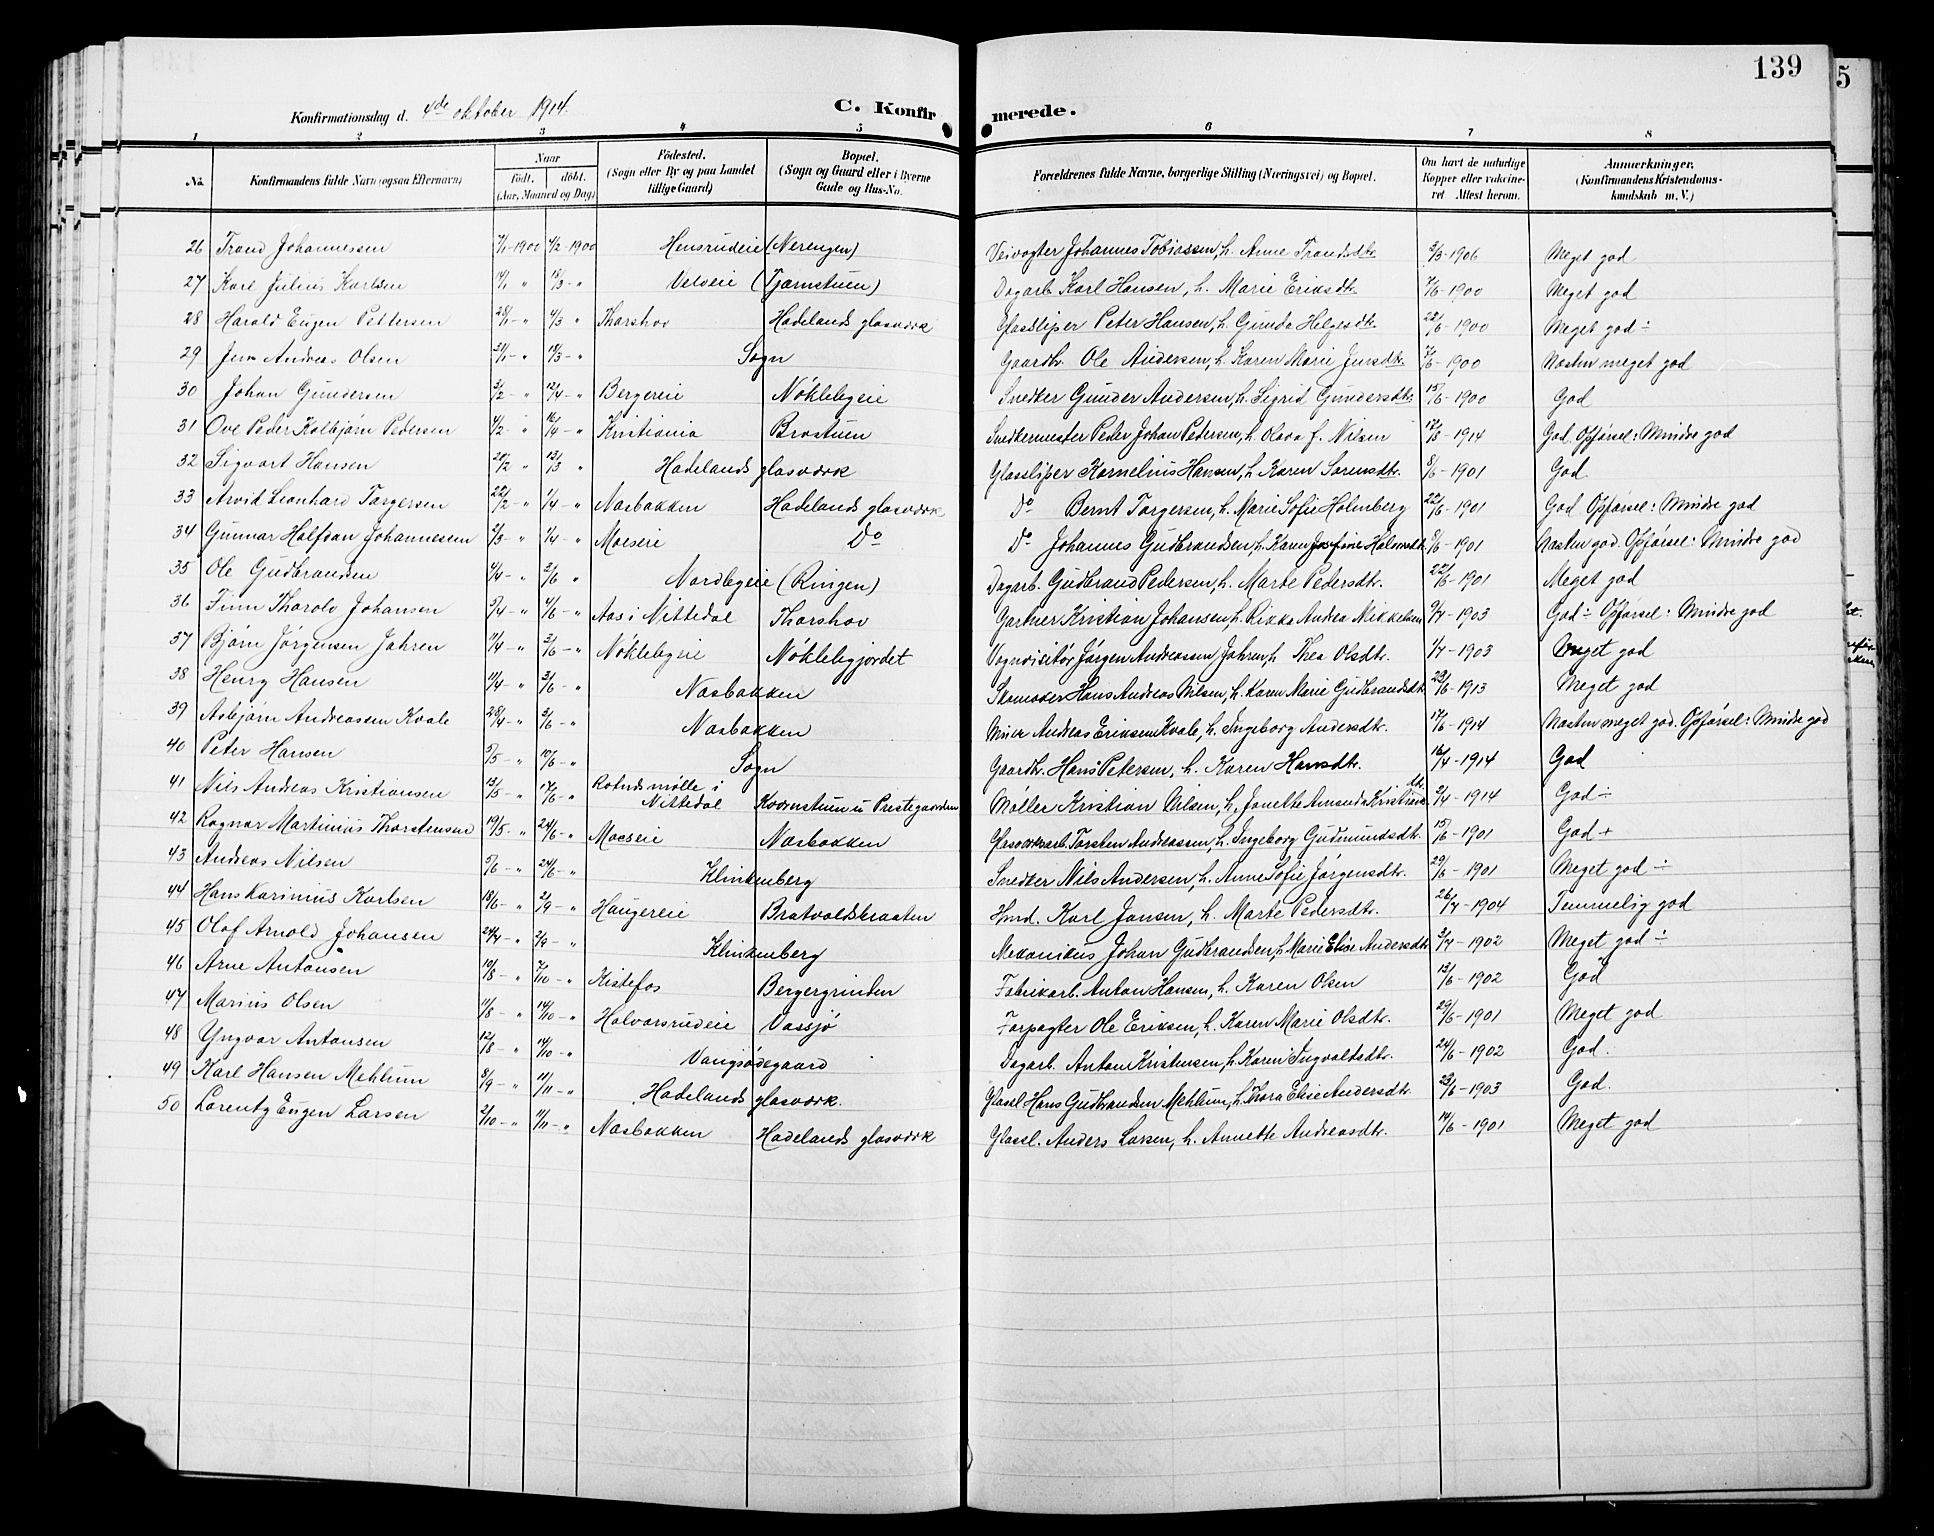 139
5
Konfirmationsdag d. 4de oktober 1914.
C. Konfirmerede.
1 2 3 4 5 6 7 8
No. Konfirmandens fulde Navn (ogsaa Efternavn) Naar født. døbt. (Aar, Maaned og Dag) Fødested. (Sogn eller By og paa Landet tillige Gaard) Bopæl. (Sogn og Gaard eller i Byerne Gade og Hus-No. Forældrenes fulde Navne, borgerlige Stilling (Næringsvei) og Bopæl. Om havt de naturlige Kopper eller vakcineret Attest herom. Anmerkninger. (Konfirmandens Kristendomskundskab m. V.)
26 Trond Johannessen 7/1-1900 4/2-1900 Hensrudeie (Nerengen) Veivogter Johannes Tobiassen, h. Anne Trondsdtr. 2/3-1906 Meget god
27 Karl Julius Karlsen 14/1 " 18/3 - " Velveie (Tjernstuen) Dagarb. Karl Hansen, h. Marie Eriksdtr. 7/6-1900 Meget god
28 Harald Eugen Pettersen 28/1 - " 4/3 " Thorshov Hadelands glasværk Glassliper Peter Hansen, h. Gunda Helgesdtr. 22/6-1900 Meget god ÷
29 Jens Andreas Olsen 31/1 - " 18/3 - " Sogn Gaardbr. Ole Andersen, h. Karen Marie Jensdtr. 7/6-1900 Næsten meget god
30 Johan Gundersen 3/2 - " 12/4 - " Bergereie Nøklebyeie Snedker Gunder Andersen, h. Sigrid Gundersdtr. 15/6-1900 God
31 Ove Peder Kolbjørn Pedersen 4/2 - " 16/4 - " Kristiania Brostuen Snedkermester Peder Johan Pedersen, h. Olava f. Nilsen 17/8-1914 God. Opførsel: Mindre god
32 Sigvart Hansen 20/2 " 13/3 " Hadelands glasværk Glassliper Kornelius Hansen, h. Karen Sørensdtr. 8/6-1901 God
33 Arvid Leonhard Torgersen 22/2 - " 1/4 - " Næsbakken Hadelands glasværk Do Bernt Torgersen, h. Marie Sofie Holmberg 22/6-1901 God Opførsel: Mindre god
34 Gunnar Halfdan Johannesen 2/3 - " 1/4 - " Moeseie Do Do Johannes Gudbrandsen h. Karen Josefine Halvorsdtr. 8/6-1901 Næsten god. Opførsel: Mindre god
35 Ole Gudbrandsen 4/4 - " 3/6 " Nordbyeie (Ringen) Dagarb. Gudbrand Pedersen, h. Marte Pedersdtr. 22/6-1901 Meget god
36 Finn Thorolv Johansen 5/4 - " 4/6 - " Aas i Nittedal Thorshov Gartner Kristian Johansen, h. Rikka Andrea Mikkelsen 9/7-1903 God ÷ Opførsel: Mindre god
37 Bjørn Jørgensen Jahren 11/4 - " 3/6 - " Nøklebyeie Nøklebygjordet Vognvisitør Jørgen Andreassen Jahren, h Thea Olsdtr. 1/7-1903 Meget god
38 Henry Hansen 11/4 - " 3/6 - " Næsbakken Skomaker Hans Andreas Nilsen, h. Karen Marie Gudbrandsdtr 23/6-1913 Meget god
39 Asbjørn Andreassen Kvale 28/4 - " 3/6 - " Næsbakken Murer Andreas Eriksen Kvale, h. Ingeborg Andersdtr. 17/6-1914 Næsten meget god. Opførsel: Mindre god
40 Peter Hansen 5/5 - " 10/6 - " Sogn Gaardbr. Hans Petersen, h. Karen Hansdtr. 16/4-1914 God
41 Nils Andreas Kristiansen 13/5 - " 17/6 - " Rotnds mølle i Nittedal Kvernstuen u. Prestegaarden Møller Kristian Nilsen, h. Jonette Amunda Kristiansdtr. 3/4-1914 God ÷
42 Ragnar Martinius Thorstensen 19/5 - " 24/6 - " Moeseie Næsbakken Glasværksarb. Torsten Andreassen, h. Ingeborg Gudmundsdtr. 15/6-1901 God +
43 Andreas Nilsen 5/6 - " 24/6 - " Klinkenberg Snedker Nils Andersen, h. Anne Sofie Jørgensdtr. 29/6-1901 Meget god ÷
44 Hans Karinius Karlsen 18/6 - " 2/9 - " Haugereie Bratvoldsbraaten Hmd. Karl Jansen, h. Marte Pedersdtr. 26/7-1904 Temmelig god
45 Olaf Arnold Johansen 24/7 - " 2/9 - " Klinkenberg Mekanikus Johan Gudbrandsen, h Marie Elise Andersdtr 3/7-1902 Meget god ÷
46 Arne Antonsen 10/8 - " 7/10 - " Kistefos Bergergrinden Fabrikarb. Anton Hansen, h. Karen Olsen 13/6-1902 God
47 Marius Olsen 11/8 - " 14/10 - " Halvorsrudeie Vassjø Forpagter Ole Eriksen, h. Karen Marie Olsdtr. 29/6-1901 Meget god
48 Yngvar Antonsen 12/8 " 14/10 - " Vangsødegaard Dagarb. Anton Kristensen, h. Karen Ingvaldsdtr. 24/6-1902 God.
49 Karl Hansen Mehlum 8/9 - " 11/11 - " Hadelands glasværk. Glassl. Hans Gudbrandsen Mehlum, h. Thora Elise Andersdtr. 23/6-1903 God.
50 Lorentz Eugen Larsen 2/10 - " 11/11 - " Næsbakken Hadelands glasværk Glassl. Anders Larsen, h. Annette Andreasdtr. 14/6-1901 Meget god